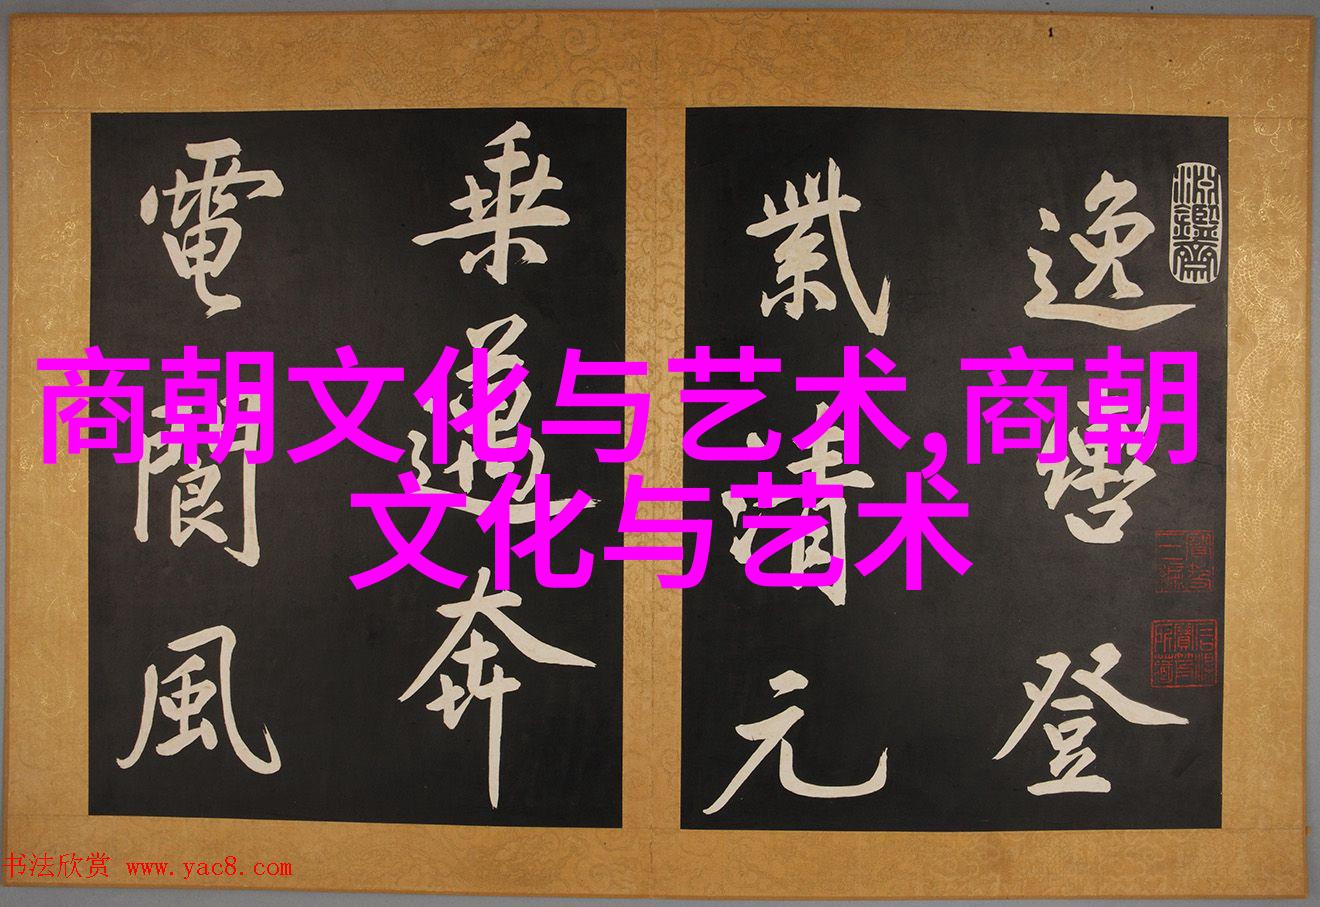 商朝文化与艺术,商朝
文化与艺术
逸
登
清元
乘
奔
電
閬風
书法欣赏 www.yac8.com